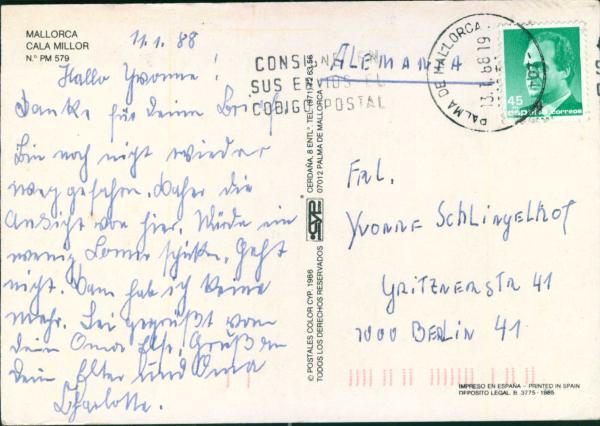 MALLORCA
CALA MILLOR
N.° PM 579
11.1.88
Hallo Yvonne!
Danke für Deinen Brief.
Bin noch nicht wieder
weg gefahren. Daher die
Ansicht von hier. Würde ein
wenig Sonne schicken. Geht
nicht. Dann hab ich keine
mehr. Sei gegrüßt von
Dein Oma Else, Grüß an
Dein Elter und Oma
Charlotte.
CONSIGNE EN
SUS ENVIOS EL
CODIGO POSTAL
ALEMANIA
PALMA DE MALLORCA
45
ESPAÑA correos
Frl.
YVONNE SCHLINGELHOF
GRITZNERSTR 41
1000 BERLIN 41
CERDAÑA, 8 ENTL.°
07012 PALMA DE MALLORCA
© POSTALES COLOR CYP, 1986
TODOS LOS DERECHOS RESERVADOS
IMPRESO EN ESPAÑA - PRINTED IN SPAIN
DEPOSITO LEGAL B. 3775 - 1985